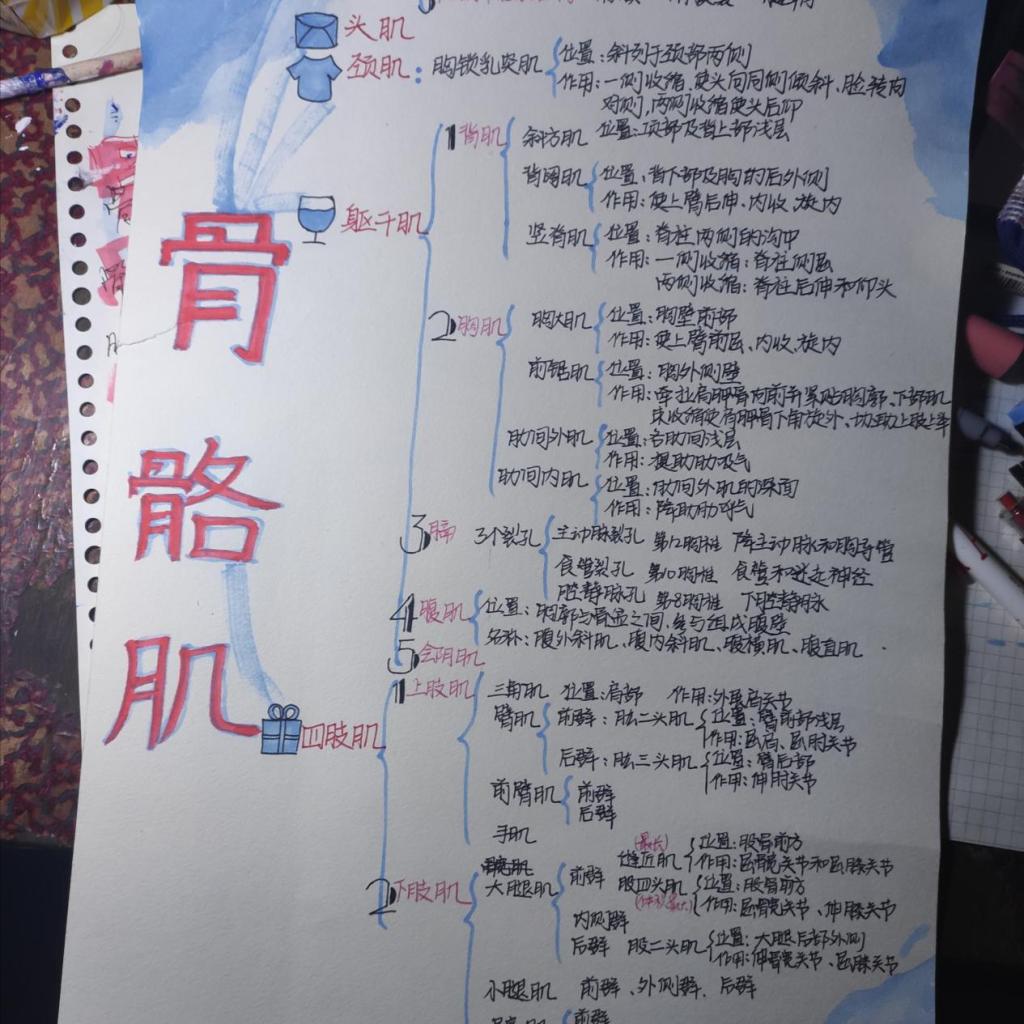 头肌
颈肌：胸锁乳突肌 位置：斜列于颈部两侧
作用：一侧收缩，使头向同侧倾斜，脸转向
对侧，两侧收缩使头后仰
躯干肌
1 背肌 斜方肌 位置：项部及背上部浅层
背阔肌 位置：背下部及胸的后外侧
作用：使上臂后伸、内收、旋内
竖脊肌 位置：脊柱两侧的沟中
作用：一侧收缩：脊柱侧屈
两侧收缩：脊柱后伸和仰头
2 胸肌 胸大肌 位置：胸壁前部
作用：使上臂前屈、内收、旋内
前锯肌 位置：胸外侧壁
作用：牵拉肩胛骨向前并紧贴胸廓、下部肌
束收缩使肩胛骨下角旋外、协助上肢上举
肋间外肌 位置：各肋间浅层
作用：提肋助吸气
肋间内肌 位置：肋间外肌的深面
作用：降肋助呼气
3 膈 3个裂孔 主动脉裂孔 第12胸椎 降主动脉和胸导管
食管裂孔 第10胸椎 食管和迷走神经
腔静脉孔 第8胸椎 下腔静脉
4 腹肌 位置：胸廓与骨盆之间，参与组成腹壁
名称：腹外斜肌、腹内斜肌、腹横肌、腹直肌
5 会阴肌
骨骼肌
四肢肌
1 上肢肌 三角肌 位置：肩部 作用：外展肩关节
臂肌 前群：肱二头肌 位置：臂前部浅层
作用：屈肩、屈肘关节
后群：肱三头肌 位置：臂后部
作用：伸肘关节
前臂肌 前群
后群
手肌
2 下肢肌 大腿肌 前群 (最长) 缝匠肌 位置：股骨前方
作用：屈髋关节和屈膝关节
股四头肌 (体积最大) 位置：股骨前方
作用：屈髋关节、伸膝关节
内侧群
后群 股二头肌 位置：大腿后部外侧
作用：伸髋关节、屈膝关节
小腿肌 前群、外侧群、后群
前群